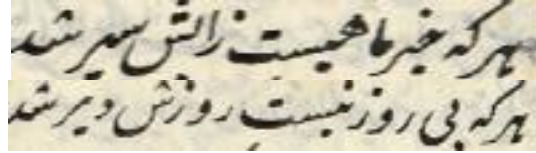 هرکه جز ماهیست ز آبش سیر شد
هرکه بی روزیست روزش دیر شد